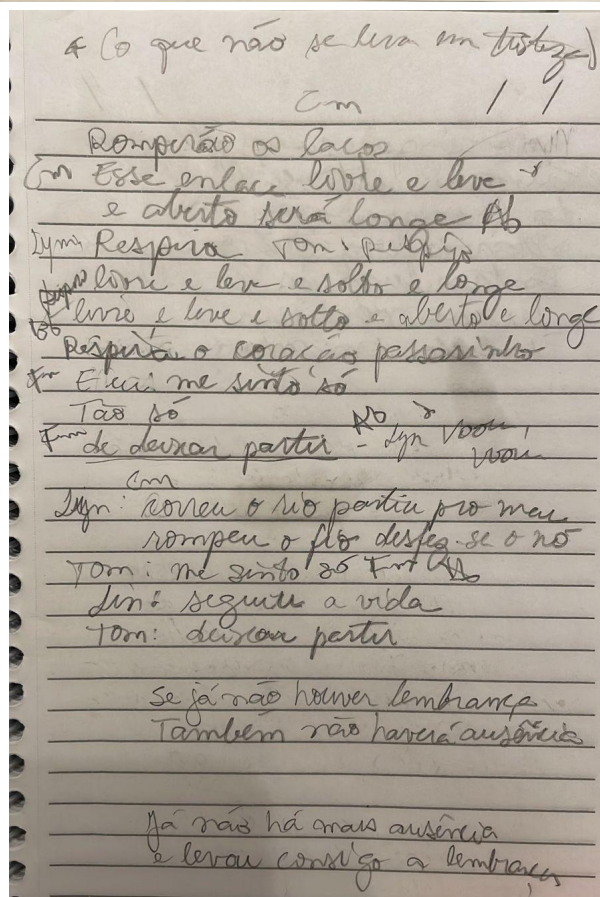 (o que não se leva em tristeza)
Cm
Romperão os laços
Cm Esse enlace livre e leve
e aberto será longe Ab
Lyn: Respira Tom:
livre e leve e solto e longe
livre e leve e solto e aberto e longe
Respira o coração passarinho
Fm E eu me sinto só
Tão só
Fm de deixar partir - Ab Lyn Voou,
voou
Cm
Lyn: correu o rio partiu pro mar
rompeu o fio desfez-se o nó
Tom: me sinto só Fm Ab
Lin: seguiu a vida
Tom: deixar partir
Se já não houver lembrança
Também não haverá ausência
Já não há mais ausência
e levou consigo a lembrança